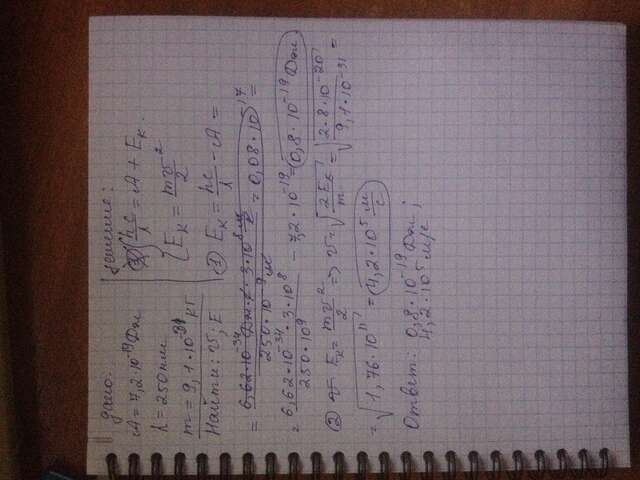 Дано:
A = 7,2·10⁻¹⁹ Дж
λ = 250 нм
m = 9,1·10⁻³¹ кг
Найти: v; E
Решение:
{ hc/λ = A + Eк.
{ Eк = mv²/2
① Eк = hc/λ - A =
= 6,62·10⁻³⁴ Дж·с·3·10⁸ м/с / 250·10⁻⁹ м = 0,08·10⁻¹⁷ =
= 6,62·10⁻³⁴·3·10⁸ / 250·10⁹ - 7,2·10⁻¹⁹ = 0,8·10⁻¹⁹ Дж
② Eк = mv²/2 => v = √(2Eк/m) = √(2·8·10⁻²⁰ / 9,1·10⁻³¹) =
= √(1,76·10¹¹) = 4,2·10⁵ м/с
Ответ: 0,8·10⁻¹⁹ Дж;
4,2·10⁵ м/с